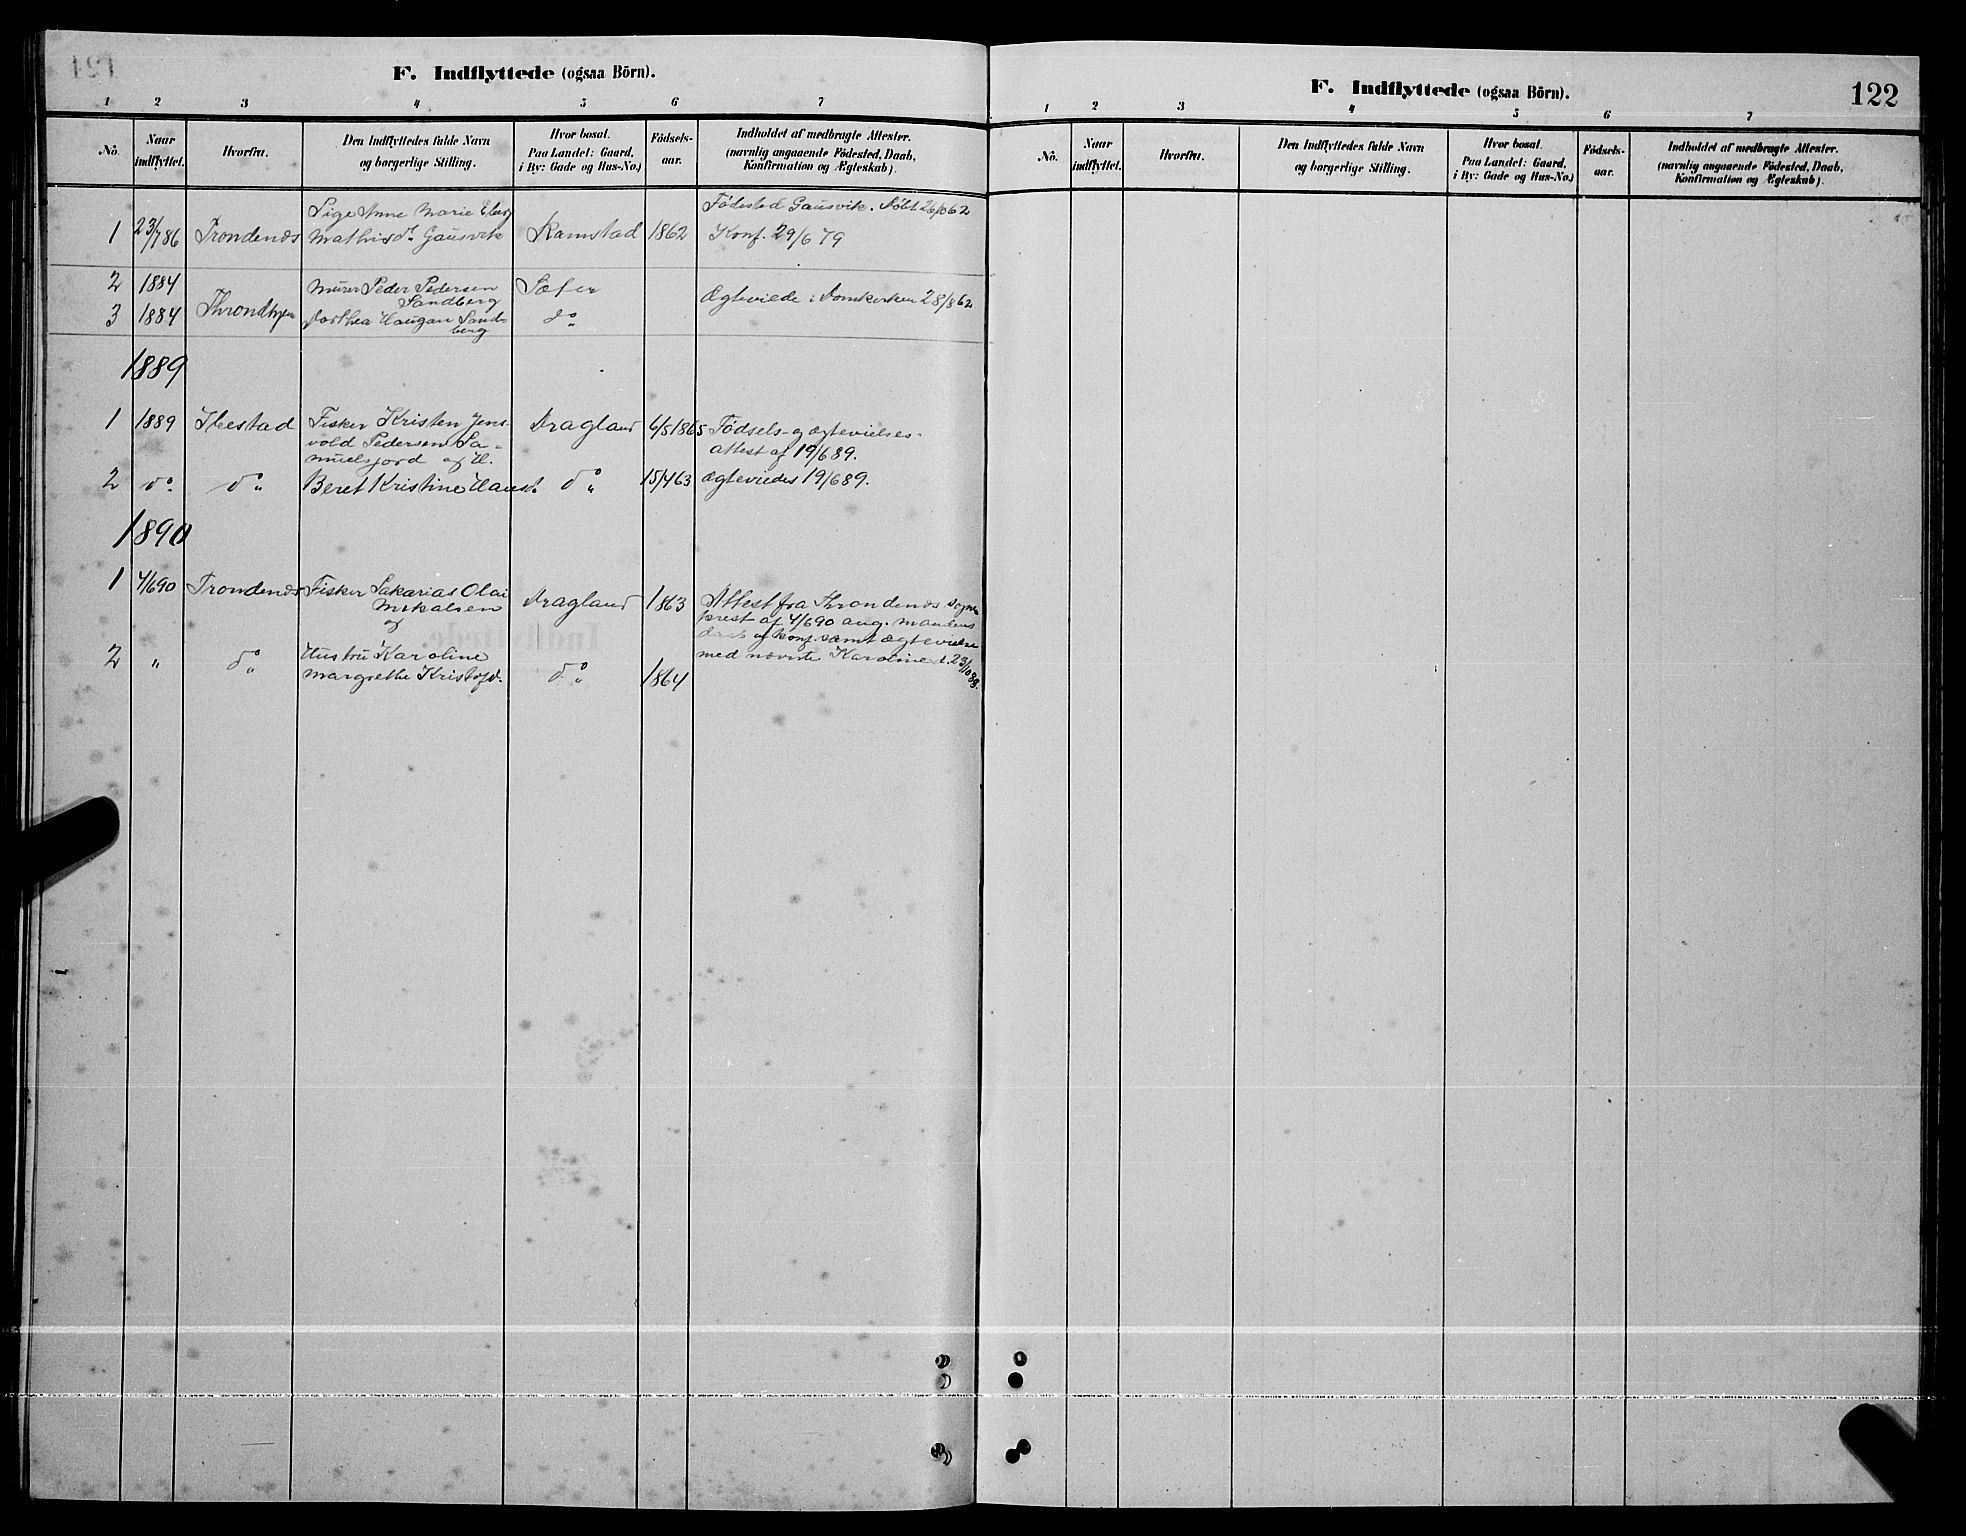 F. Indflyttede (ogsaa Börn).
1 2 3 4 5 6 7
No. Naar indflyttet. Hvorfra. Den Indflyttedes fulde Navn og borgerlige Stilling. Hvor bosat. Paa Landet: Gaard, i By: Gade og Hus-No.) Fødsels-aar. Indholdet af medbragte Attester. (navnlig angaaende Fødested, Daab, Konfirmation og Ægteskab).
Pige Anne Marie Fødested Gausvik. Døbt 26/10 62
1 23/7 86 Trondenes Mathisdr. Gausvik Ramstad 1862 Konf. 29/6 79
2 1884 Murer Peder Pedersen
Sandberg Ægteviede i Domkerken 28/8 62
3 1884 Throndhjem Dorthea Haugan Sand-
berg do
1889
1 1889 Ibestad Fisker Kristen Jens- Dragland 6/5 1865 Fødsels- og ægtevielses-
vold Pedersen Sa- attest af 19/6 89.
muelsjord og H.
2 do do Beret Kristine Hansd. do 15/4 63 Ægteviedes 19/6 89.
1890
1 4/6 90 Trondenes Fisker Sakarias Olai
Mikalsen Dragland 1863 Attest fra Throndenes Sogne-
og prest af 4/6 90 ang. mandens
daab og konf. samt ægtevielse
2 " do Hustru Karoline med nævnte Karoline d. 23/10 88.
Margrethe Kristofd. do 1864
122
F. Indflyttede (ogsaa Börn).
1 2 3 4 5 6 7
No. Naar indflyttet. Hvorfra. Den Indflyttedes fulde Navn og borgerlige Stilling. Hvor bosat. Paa Landet: Gaard, i By: Gade og Hus-No.) Fødsels-aar. Indholdet af medbragte Attester. (navnlig angaaende Fødested, Daab, Konfirmation og Ægteskab).